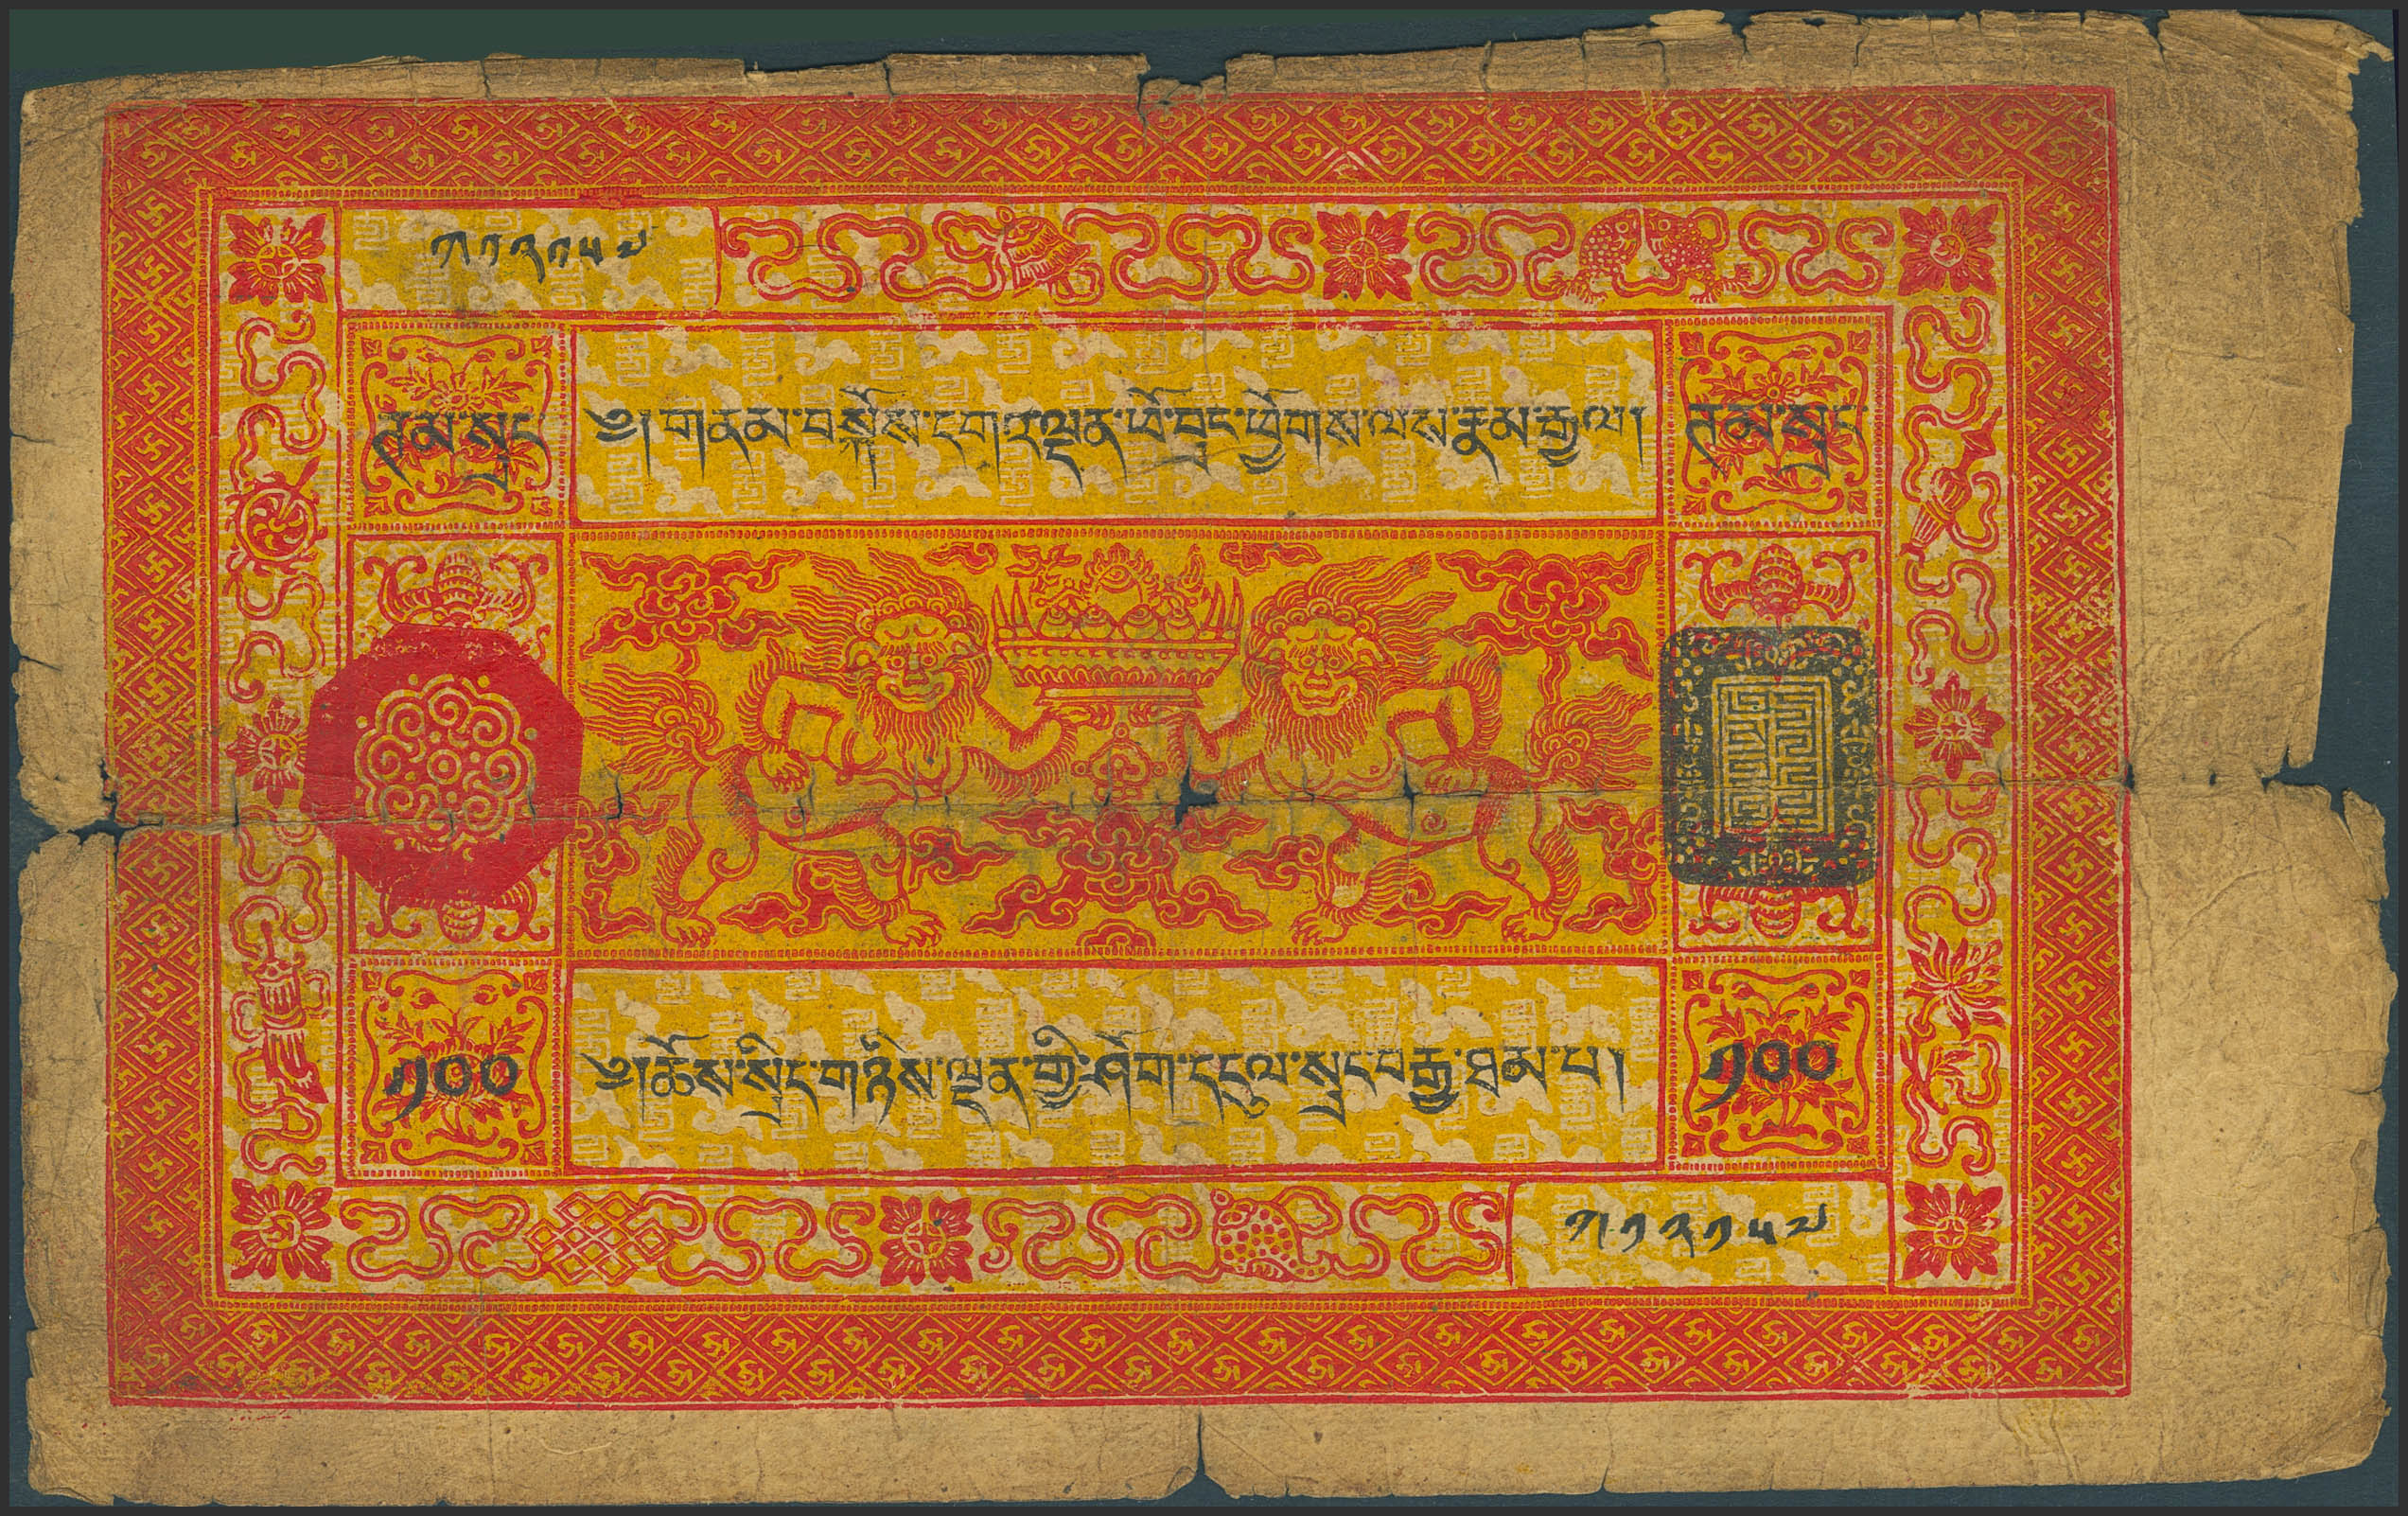 ཏམ་སྲང ༄། གནམ་བསྐོས་དགའ་ལྡན་ཕོ་བྲང་ཕྱོགས་ལས་རྣམ་རྒྱལ། ཏམ་སྲང
༡༠༠ ༄། ཆོས་སྲིད་གཉིས་ལྡན་གྱི་ཤོག་དངུལ་སྲང་བརྒྱ་ཐམ་པ། ༡༠༠